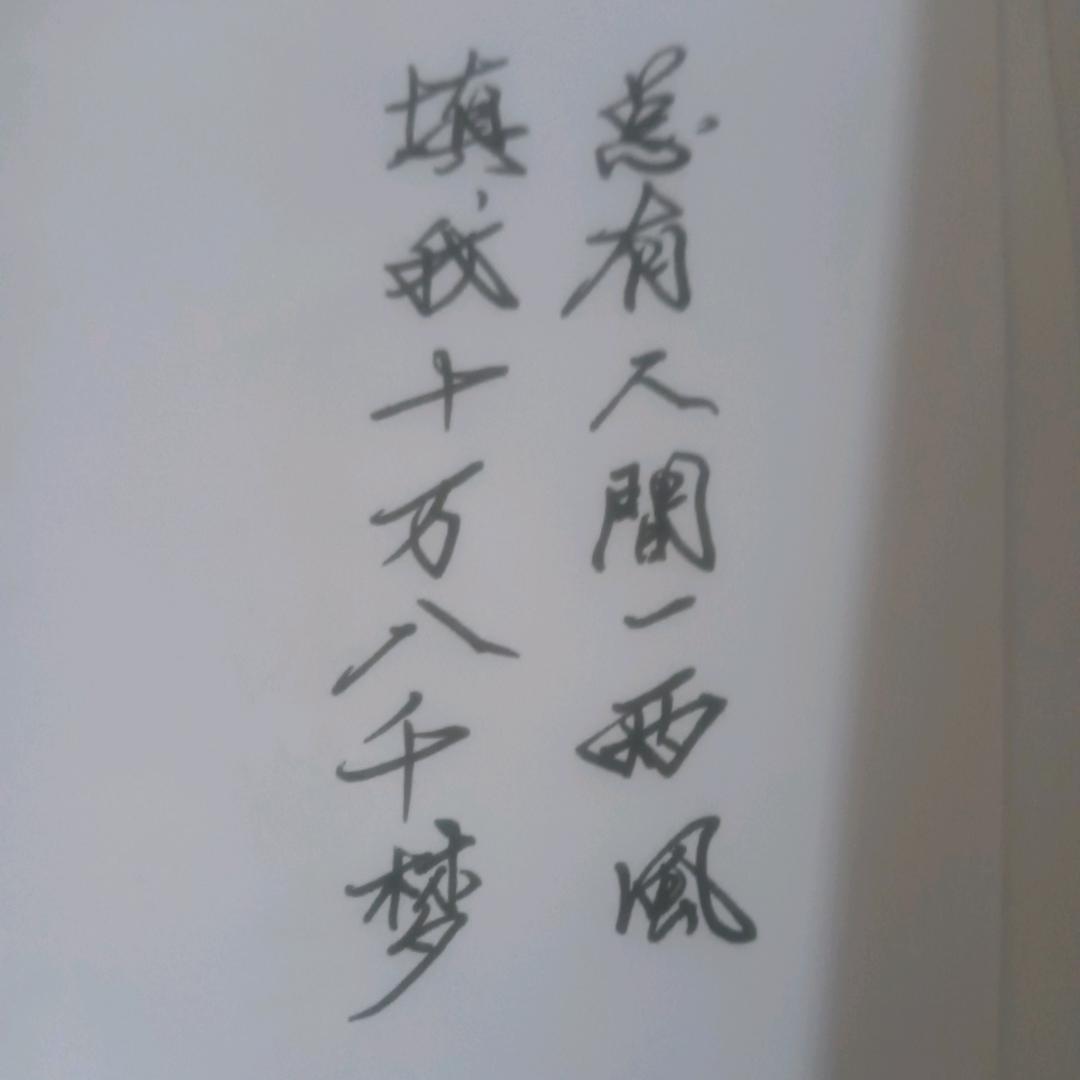 总有人間一两風
填我十万八千梦